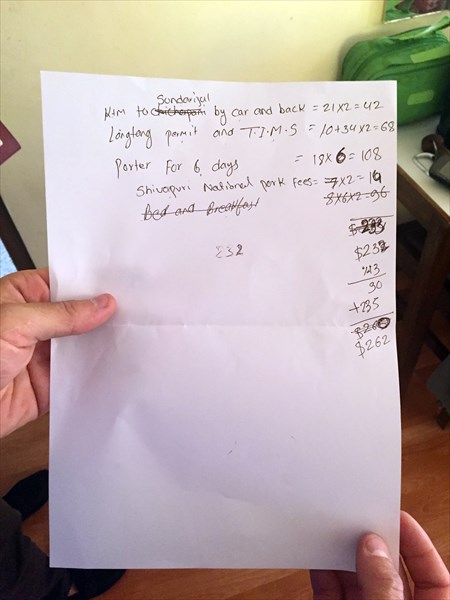 Sundarijal
KTM to Chicherpani by car and back = 21x2 = 42
Langtang permit and T.I.M.S = 10+34x2=68
Porter For 6 days = 18x6=108
Shivapuri National park Fees= 7x2=14
Bed and Breakfast 8x6x2=96
$233
232 $232
30
+235
$262